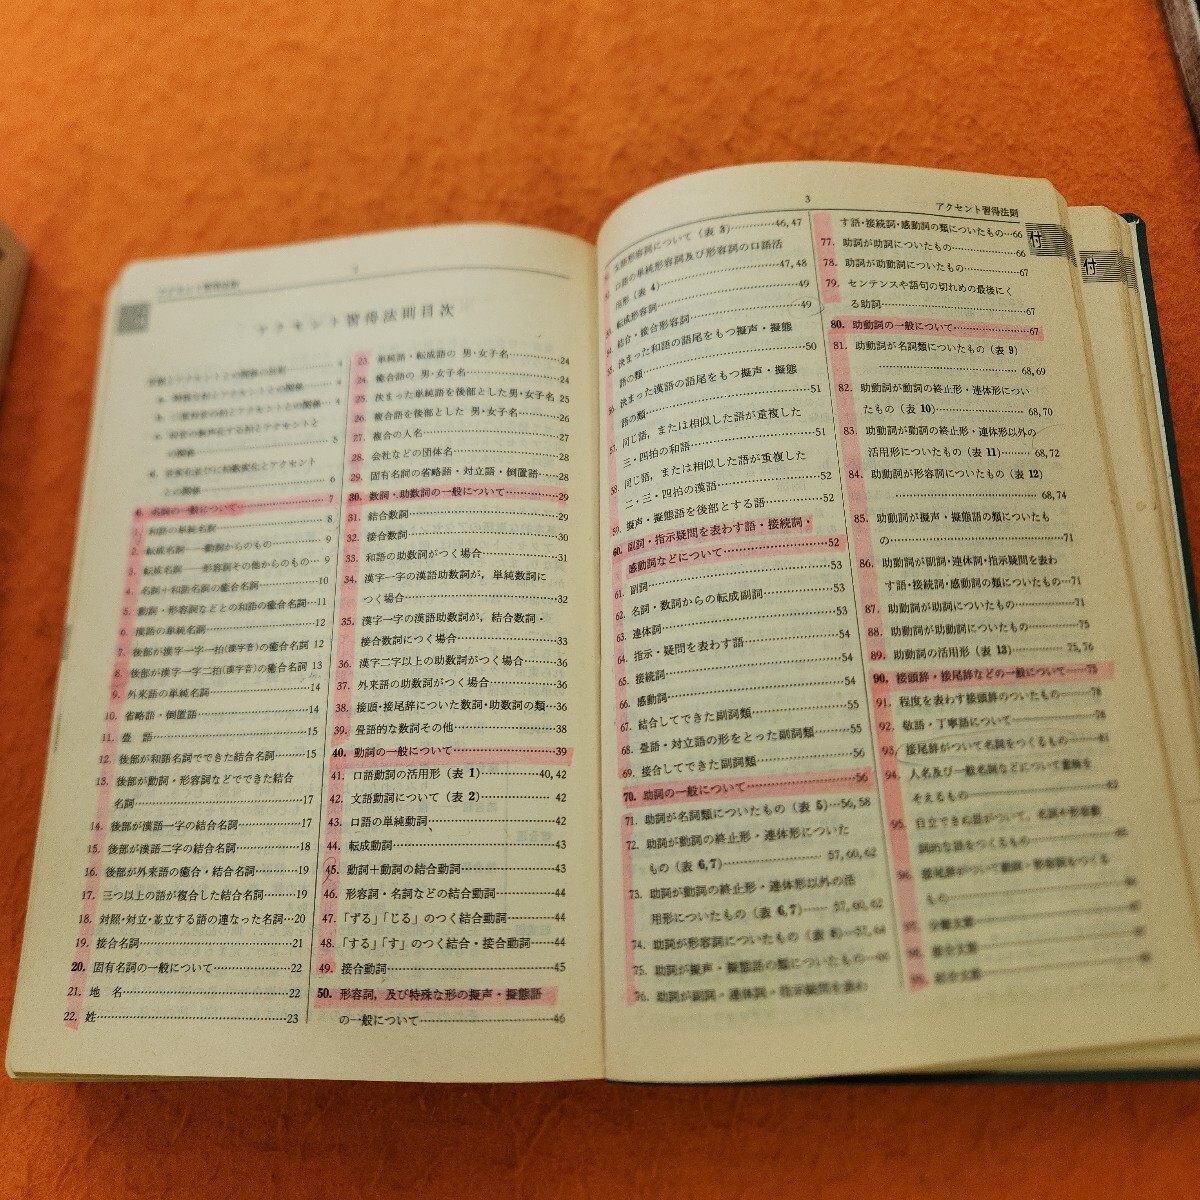 アクセント習得法則
アクセント習得法則目次
音韻とアクセントとの関係の法則 4
との関係 5
との関係 6
0. 名詞の一般について 7
1. 和語の単純名詞 8
2. 転成名詞——動詞からのもの 9
3. 転成名詞——形容詞その他からのもの 9
4. 名詞+和語名詞の癒合名詞 10
5. 動詞・形容詞などとの和語の癒合名詞 11
6. 漢語の単純名詞 12
7. 後部が漢字一字一拍(漢字音)の癒合名詞 12
8. 後部が漢字一字二拍(漢字音)の癒合名詞 13
9. 外来語の単純名詞 14
10. 省略語・倒置語 14
11. 畳 語 15
12. 後部が和語名詞でできた結合名詞 15
13. 後部が動詞・形容詞などでできた結合
名詞 17
14. 後部が漢語一字の結合名詞 17
15. 後部が漢語二字の結合名詞 18
16. 後部が外来語の癒合・結合名詞 19
17. 三つ以上の語が複合した結合名詞 19
18. 対照・対立・並立する語の連なった名詞 20
19. 接合名詞 21
20. 固有名詞の一般について 22
21. 地 名 22
22. 姓 23
23. 単純語・転成語の 男・女子名 24
24. 癒合語の 男・女子名 24
25. 決まった単純語を後部とした男・女子名 25
26. 複合語を後部とした 男・女子名 26
27. 複合の人名 27
28. 会社などの団体名 28
29. 固有名詞の省略語・対立語・倒置語 28
30. 数詞・助数詞の一般について 29
31. 結合数詞 29
32. 接合数詞 30
33. 和語の助数詞がつく場合 31
34. 漢字一字の漢語助数詞が,単純数詞に
つく場合 32
35. 漢字一字の漢語助数詞が,結合数詞・
接合数詞につく場合 33
36. 漢字二字以上の助数詞がつく場合 36
37. 外来語の助数詞がつく場合 36
38. 接頭・接尾辞についた数詞・助数詞の類 36
39. 畳語的な数詞その他 38
40. 動詞の一般について 39
41. 口語動詞の活用形(表 1) 40, 42
42. 文語動詞について(表 2) 42
43. 口語の単純動詞 42
44. 転成動詞 43
45. 動詞+動詞の結合動詞 43
46. 形容詞・名詞などの結合動詞 44
47. 「ずる」「じる」のつく結合動詞 44
48. 「する」「す」のつく結合・接合動詞 44
49. 接合動詞 45
50. 形容詞,及び特殊な形の擬声・擬態語
の一般について 46
3
アクセント習得法則
付
付
文語形容詞について(表 3) 46, 47
口語の単純形容詞及び形容詞の口語活
用形(表 4) 47, 48
転成形容詞 49
結合・接合形容詞 49
決まった和語の語尾をもつ擬声・擬態
語の類 50
56. 決まった漢語の語尾をもつ擬声・擬態
語の類 51
57. 同じ語,または相似した語が重複した
三・四拍の和語 51
58. 同じ語,または相似した語が重複した
二・三・四拍の漢語 52
59. 擬声・擬態語を後部とする語 52
60. 副詞・指示疑問を表わす語・接続詞・
感動詞などについて 52
61. 副詞 53
62. 名詞・数詞からの転成副詞 53
63. 連体詞 53
64. 指示・疑問を表わす語 54
65. 接続詞 54
66. 感動詞 55
67. 結合してできた副詞類 55
68. 畳語・対立語の形をとった副詞類 55
69. 接合してできた副詞類 56
70. 助詞の一般について 56
71. 助詞が名詞類についたもの(表 5) 56, 58
72. 助詞が動詞の終止形・連体形についた
もの(表 6,7) 57, 60, 62
73. 助詞が動詞の終止形・連体形以外の活
用形についたもの(表 6,7) 57, 60, 62
74. 助詞が形容詞についたもの(表 8) 57, 64
75. 助詞が擬声・擬態語の類についたもの 66
76. 助詞が副詞・連体詞・指示疑問を表わ
す語・接続詞・感動詞の類についたもの 66
77. 助詞が助詞についたもの 66
78. 助詞が助動詞についたもの 67
79. センテンスや語句の切れめの最後にく
る助詞 67
80. 助動詞の一般について 67
81. 助動詞が名詞類についたもの(表 9)
68, 69
82. 助動詞が動詞の終止形・連体形につい
たもの(表 10) 68, 70
83. 助動詞が動詞の終止形・連体形以外の
活用形についたもの(表 11) 68, 72
84. 助動詞が形容詞についたもの(表 12)
68, 74
85. 助動詞が擬声・擬態語の類についたも
の 71
86. 助動詞が副詞・連体詞・指示疑問を表わ
す語・接続詞・感動詞の類についたもの 71
87. 助動詞が助詞についたもの 71
88. 助動詞が助動詞についたもの 75
89. 助動詞の活用形(表 13) 75, 76
90. 接頭辞・接尾辞などの一般について 75
91. 程度を表わす接頭辞のついたもの 78
92. 敬語・丁寧語について 78
93. 接尾辞がついて名詞をつくるもの 81
94. 人名及び一般名詞などについて意味を
そえるもの 82
95. 自立できぬ語がついて,名詞や形容動
詞的な語をつくるもの
96. 接尾語がついて動詞・形容詞をつくる
もの